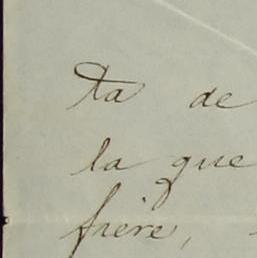 ta de
la que
frère,